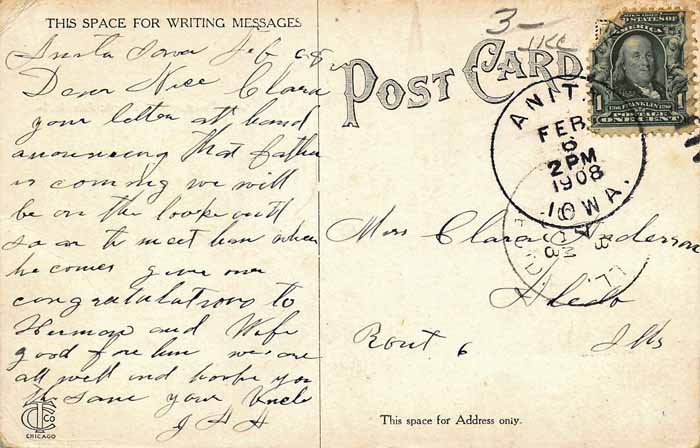 THIS SPACE FOR WRITING MESSAGES
Anita Iowa Feb 6-8
Dear Niece Clara
your letter at hand
anouncing that father
is coming we will
be on the looke outt
so as to meet him when
he comes give our
congratulations to
Herman and Wife
good for him we are
all well and hope you
the same your Uncle
J A A
CTCo
CHICAGO
3-
POST CARD
UNITED STATES OF AMERICA
1 FRANKLIN 1
POSTAGE
ONE CENT
ANITA
FEB
6
2PM
1908
IOWA.
Miss Clara Anderson
Aledo
Rout 6 Ills
This space for Address only.